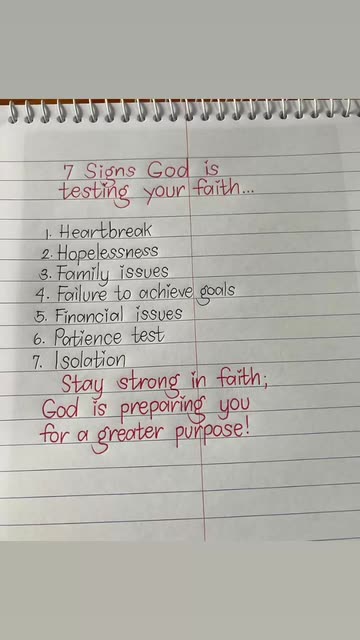 7 Signs God is
testing your faith...
1. Heartbreak
2. Hopelessness
3. Family issues
4. Failure to achieve goals
5. Financial issues
6. Patience test
7. Isolation
Stay strong in faith;
God is preparing you
for a greater purpose!